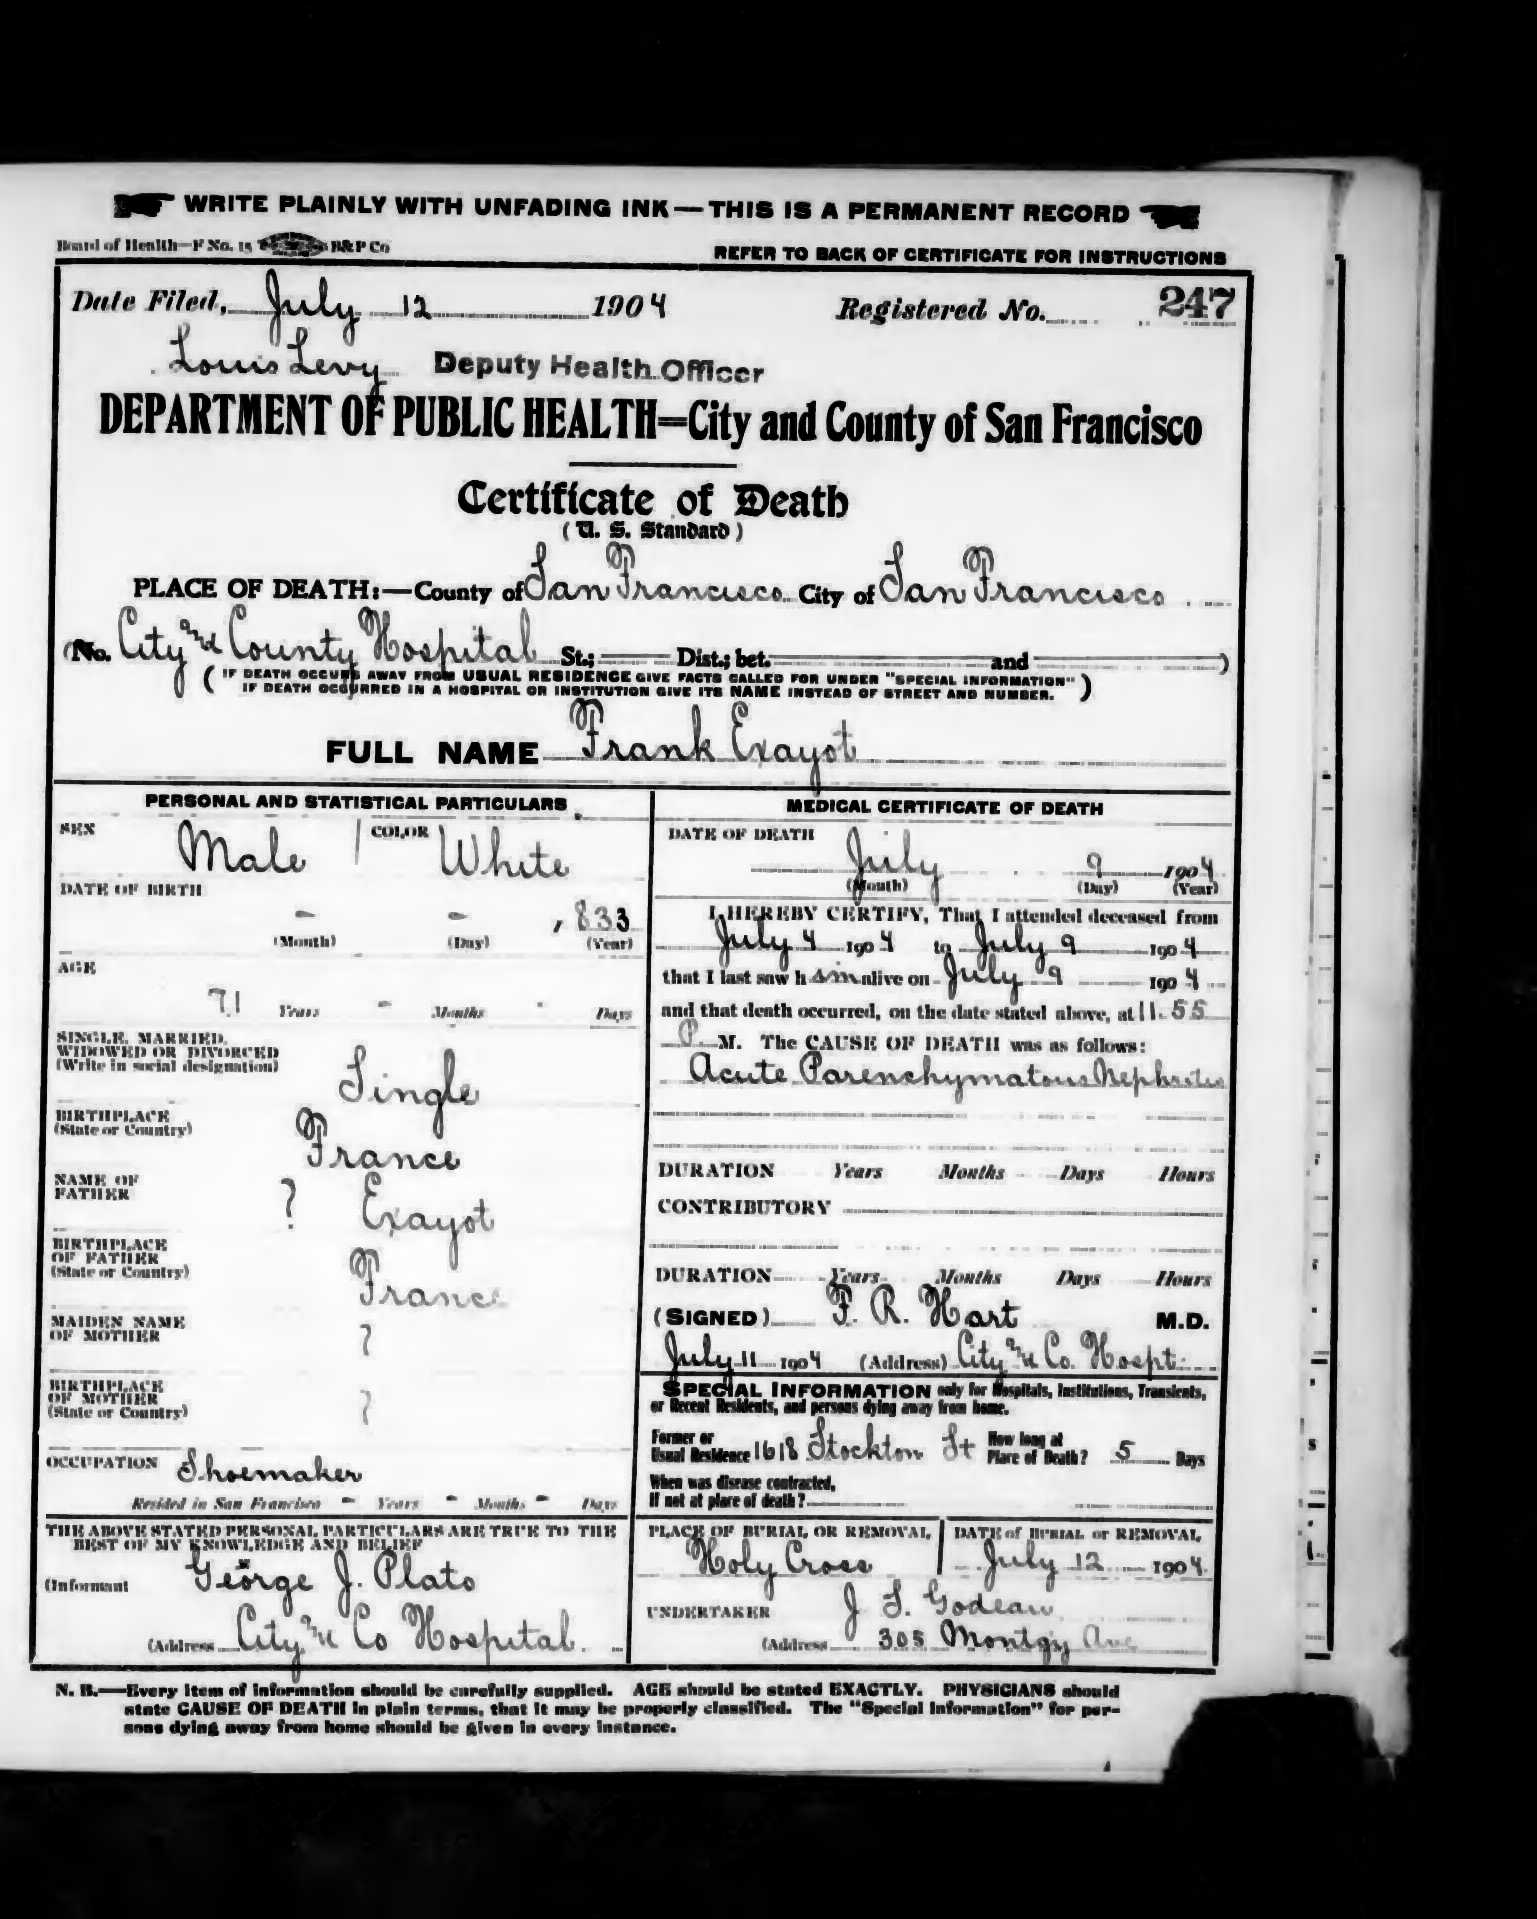 WRITE PLAINLY WITH UNFADING INK—THIS IS A PERMANENT RECORD
Board of Health—F No. 15 B&P Co
REFER TO BACK OF CERTIFICATE FOR INSTRUCTIONS
Date Filed, July 12 1904 Registered No. 247
Louis Levy Deputy Health Officer
DEPARTMENT OF PUBLIC HEALTH=City and County of San Francisco
Certificate of Death
(U. S. Standard)
PLACE OF DEATH:—County of San Francisco City of San Francisco
(No. City and County Hospital St.; Dist.; bet. and )
(IF DEATH OCCURS AWAY FROM USUAL RESIDENCE GIVE FACTS CALLED FOR UNDER "SPECIAL INFORMATION"
IF DEATH OCCURRED IN A HOSPITAL OR INSTITUTION GIVE ITS NAME INSTEAD OF STREET AND NUMBER.)
FULL NAME Frank Exayot
PERSONAL AND STATISTICAL PARTICULARS
SEX Male COLOR White
DATE OF BIRTH
- - , 833
(Month) (Day) (Year)
AGE
71 Years - Months - Days
SINGLE, MARRIED,
WIDOWED OR DIVORCED
(Write in social designation)
Single
BIRTHPLACE
(State or Country)
France
NAME OF
FATHER
? Exayot
BIRTHPLACE
OF FATHER
(State or Country)
France
MAIDEN NAME
OF MOTHER
?
BIRTHPLACE
OF MOTHER
(State or Country)
?
OCCUPATION Shoemaker
Resided in San Francisco - Years - Months - Days
THE ABOVE STATED PERSONAL PARTICULARS ARE TRUE TO THE
BEST OF MY KNOWLEDGE AND BELIEF
(Informant George J. Plato
(Address City and Co Hospital
MEDICAL CERTIFICATE OF DEATH
DATE OF DEATH
July 9 1904
(Month) (Day) (Year)
I HEREBY CERTIFY, That I attended deceased from
July 4 1904 to July 9 1904
that I last saw him alive on July 9 1904
and that death occurred, on the date stated above, at 11.55
P M. The CAUSE OF DEATH was as follows:
Acute Parenchymatous Nephritis
DURATION Years Months Days Hours
CONTRIBUTORY
DURATION Years Months Days Hours
(SIGNED) F. R. Hart M.D.
July 11 1904 (Address) City and Co. Hospt.
SPECIAL INFORMATION only for Hospitals, Institutions, Transients,
or Recent Residents, and persons dying away from home.
Former or
Usual Residence 1618 Stockton St How long at
Place of Death? 5 Days
When was disease contracted,
If not at place of death?
PLACE OF BURIAL OR REMOVAL
Holy Cross
DATE of BURIAL or REMOVAL
July 12 1904
UNDERTAKER J S. Godeau
(Address 305 Montgy Ave
N. B.—Every item of information should be carefully supplied. AGE should be stated EXACTLY. PHYSICIANS should
state CAUSE OF DEATH in plain terms, that it may be properly classified. The "Special Information" for per-
sons dying away from home should be given in every instance.